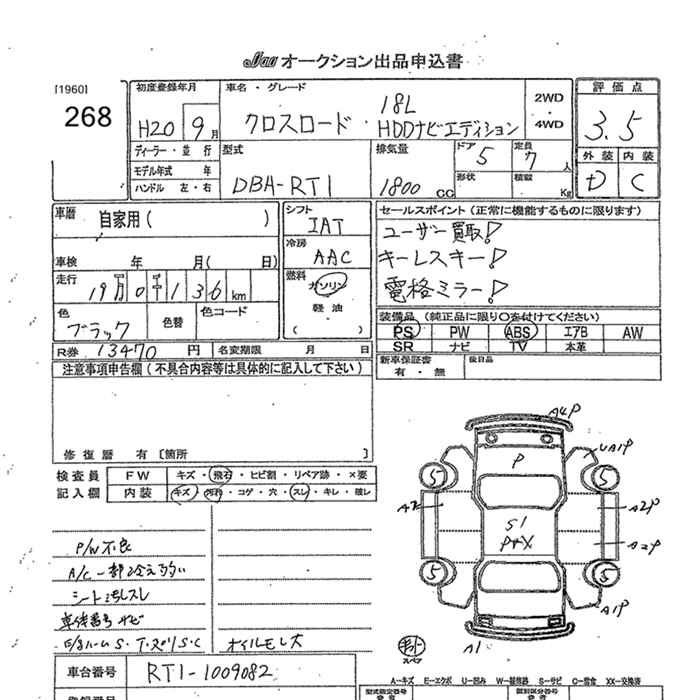 Jau オークション出品申込書
[1960]
268
初度登録年月
H20 9 月
車名・グレード
クロスロード 18L
HDDナビエディション
2WD
・
4WD
評価点
3.5
外装 内装
D C
ディーラー・並 行
モデル年式 年
ハンドル 左・右
型式
DBA-RT1
排気量
1800 CC
ドア 5
定員 7 人
形状
積載 Kg
車歴 自家用( )
車検 年 月( 日)
走行 19万0千136 km
色 ブラック
色替
色コード
シフト
IAT
冷房
AAC
燃料
ガソリン
軽油
( )
セールスポイント(正常に機能するものに限ります)
ユーザー買取!
キーレスキー!
電格ミラー!
装備品(純正品に限り○を付けてください)
PS PW ABS エアB AW
SR ナビ TV 本革
新車保証書
有・無
後日品
R券 13470 円
名変期限 月 日
注意事項申告欄(不具合内容等は具体的に記入して下さい)
修復歴 有[箇所 ]
検査員
記入欄
FW キズ・飛石・ヒビ割・リペア跡・×要
内装 キズ・汚れ・コゲ・穴・スレ・キレ・破レ
P/W不良
A/C一部冷え弱い
シート汚レスレ
車体番号サビ
オイルモレ大
A4P
UA1P
P
5
5
A2
A2P
S1
P+X
A2P
5
5
A1P
A1
スペア
車台番号 RT1-1009082
A-キズ E-エクボ U-凹み W-補修跡 S-サビ C-腐食 XX-交換済
型式指定番号
類別区分番号
登録番号